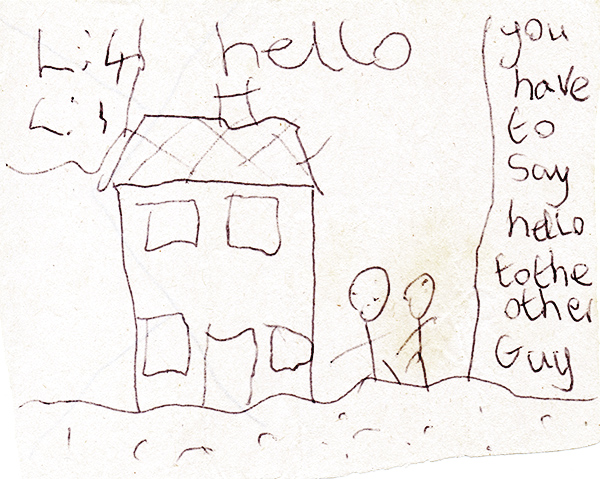 Li4
Li1
hello
you
have
to
say
hello
to the
other
Guy